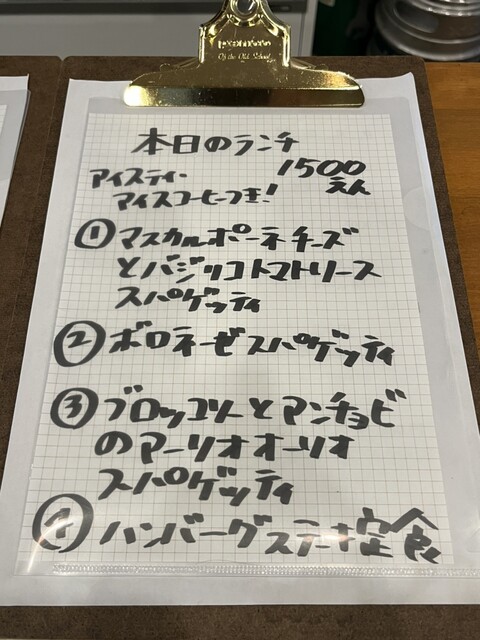 penco
Of the Old School
本日のランチ
1500
アイスティー
えん
アイスコーヒーつき!
① マスカルポーネチーズ
とバジリコトマトソース
スパゲッティ
② ボロネーゼスパゲッティ
③ ブロッコリーとアンチョビ
のアーリオオーリオ
スパゲッティ
④ ハンバーグステーキ定食